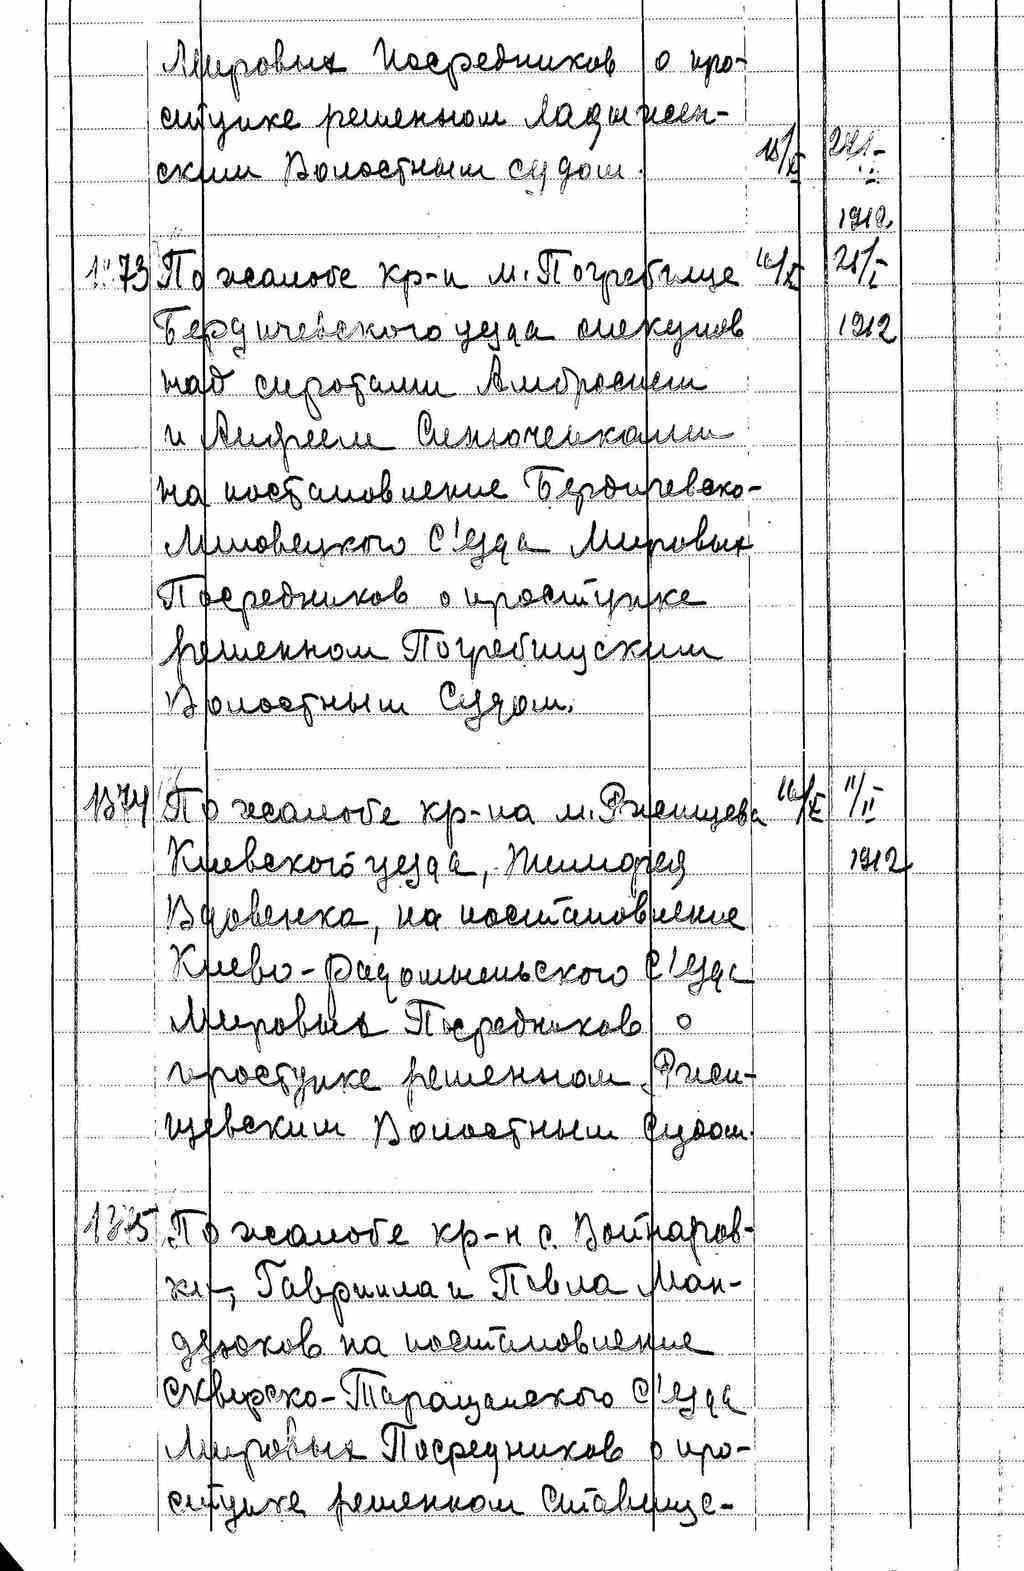 Мировых Посредников о про-
ступке решенном Ладыжен-
ским Волостным судом. 15/XI
1912
1373 По жалобе кр-н м. Погребище 16/XI 25/I
Бердичевского уезда опекунов 1912
над сиротами Амбросием
и Андреем Синюченками
на постановление Бердичевско-
Липовецкого С'езда Мировых
Посредников о проступке
решенном Погребищским
Волостным Судом.
1374 По жалобе кр-на м. Ржищева 16/XI 11/II
Киевского уезда, Тимофея 1912
Вдовенка, на постановление
Киево-Радомысльского С'езда
Мировых Посредников о
проступке решенном Ржи-
щевским Волостным Судом.
1375 По жалобе кр-н с. Войнаров-
ки, Гавриила и Павла Ман-
дзюков на постановление
Сквирско-Таращанского С'езда
Мировых Посредников о про-
ступке решенном Ставище-